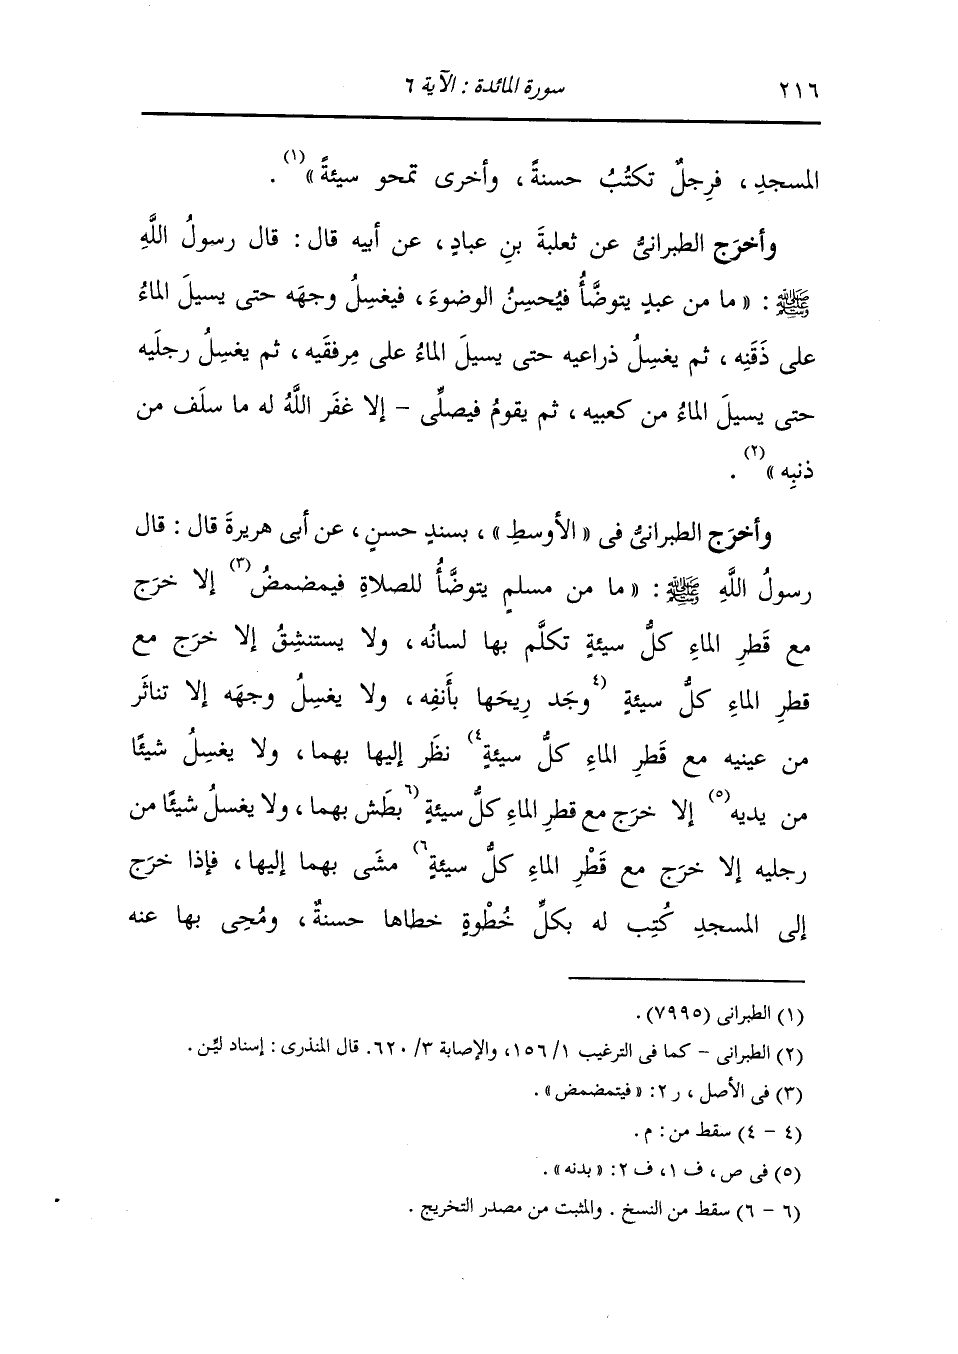 ٢١٦ سورة المائدة : الآية ٦
المسجدِ ، فرِجلٌ تكتُبُ حسنةً ، وأخرى تمحو سيئةً »(١) .
وأخرَج الطبرانىُّ عن ثعلبةَ بنِ عبادٍ ، عن أبيه قال : قال رسولُ اللَّهِ
ﷺ : « ما من عبدٍ يتوضَّأُ فيُحسِنُ الوضوءَ ، فيغسِلُ وجهَه حتى يسيلَ الماءُ
على ذَقَنِه ، ثم يغسِلُ ذراعيه حتى يسيلَ الماءُ على مِرفقَيه ، ثم يغسِلُ رجلَيه
حتى يسيلَ الماءُ من كعبيه ، ثم يقومُ فيصلِّى – إلا غفَر اللَّهُ له ما سلَف من
ذنبِه »(٢) .
وأخرَج الطبرانىُّ فى « الأوسطِ » ، بسندٍ حسنٍ ، عن أبى هريرةَ قال : قال
رسولُ اللَّهِ ﷺ : « ما من مسلمٍ يتوضَّأُ للصلاةِ فيمضمضُ(٣) إلا خرَج
مع قَطرِ الماءِ كلُّ سيئةٍ تكلَّم بها لسانُه ، ولا يستنشِقُ إلا خرَج مع
قطرِ الماءِ كلُّ سيئةٍ (٤وجَد رِيحَها بأَنفِه ، ولا يغسِلُ وجهَه إلا تناثَر
من عينيه مع قَطرِ الماءِ كلُّ سيئةٍ٤) نظَر إليها بهما ، ولا يغسِلُ شيئًا
من يديه(٥) إلا خرَج مع قطرِ الماءِ كلُّ سيئةٍ (٦بطَش بهما ، ولا يغسلُ شيئًا من
رجليه إلا خرَج مع قَطْرِ الماءِ كلُّ سيئةٍ٦) مشَى بهما إليها ، فإذا خرَج
إلى المسجدِ كُتِب له بكلِّ خُطْوةٍ خطاها حسنةٌ ، ومُحِى بها عنه
(١) الطبرانى (٧٩٩٥) .
(٢) الطبرانى – كما فى الترغيب ١/ ١٥٦، والإصابة ٣/ ٦٢٠. قال المنذرى : إسناد ليِّن .
(٣) فى الأصل ، ر ٢: « فيتمضمض » .
(٤ – ٤) سقط من : م .
(٥) فى ص ، ف ١، ف ٢: « بدنه » .
(٦ – ٦) سقط من النسخ . والمثبت من مصدر التخريج .